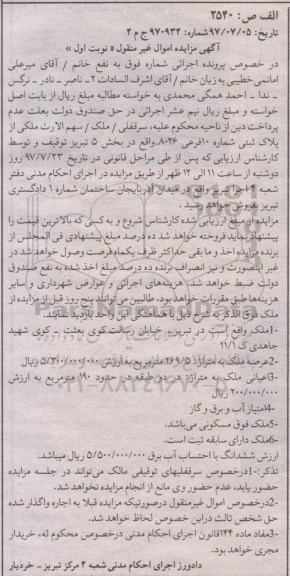 الف ص: ۲۵۴۰
تاریخ: ۹۷/۰۷/۰۵ شماره: ۹۷۰۹۳۴ ج م ۴
آگهی مزایده اموال غیر منقول « نوبت اول »
در خصوص پرونده اجرائی شماره فوق به نفع خانم / آقای میرعلی
امانمی خطیبی به زیان خانم / آقای اشرف السادات ۲ـ ناصر ـ نادر ـ نرگس
ـ ندا ـ احمد همگی محمدی به خواسته مطالبه مبلغ ریال از بابت اصل
خواسته و مبلغ ریال نیم عشر اجرائی در حق صندوق دولت بعلت عدم
پرداخت دین از ناحیه محکوم علیه، سرقفلی / ملک / سهم الارث ملکی از
پلاک ثبتی شماره ۱۰ فرعی ۸۰۲۶ واقع در بخش ۵ تبریز توقیف و توسط
کارشناس ارزیابی که پس از طی مراحل قانونی در تاریخ ۹۷/۷/۲۳ روز
دوشنبه از ساعت ۱۱ الی ۱۲ ظهر از طریق مزایده در اجرای احکام مدنی دفتر
شعبه ۴ اجرای مدنی واقع در میدان آذربایجان ساختمان شماره ۱ دادگستری
تبریز بفروش خواهد رسید.
مزایده از مبلغ ارزیابی شده کارشناس شروع و به کسی که بالاترین قیمت را
پیشنهاد نماید فروخته خواهد شد ده درصد مبلغ پیشنهادی فی المجلس از
برنده مزایده اخذ و ما بقی حداکثر ظرف یکماه فرصت وصول خواهد شد در
غیر اینصورت و نیز انصراف برنده ده درصد مبلغ اخذ شده به نفع صندوق
دولت ضبط خواهد شد. هزینه‌های اجرائی و عوارض شهرداری و سایر
هزینه‌ها طبق مقررات خواهد بود. طالبین می‌توانند پنج روز قبل از مزایده از
ملک فوق الذکر به شرح ذیل با هماهنگی این واحد بازدید نمایند.
۱-ملک واقع است در تبریز ـ خیابان رسالت کوی بعثت ـ کوی شهید
جاهدی ک ۲۱/۱
۲-عرصه ملک به متراژ ۲۶۹/۵ مترمربع به ارزش ۵/۳۰۰/۰۰۰/۰۰۰ ریال
۳-اعیانی ملک به متراژ در دو طبقه در حدود ۱۹۰ مترمربع به ارزش
۲۰۰/۰۰۰/۰۰۰ ریال
۴-امتیاز آب و برق و گاز
۵-ملک فوق مسکونی می‌باشد.
۶-ملک دارای سابقه ثبت است.
ارزش ششدانگ با احتساب آب برق ۵/۵۰۰/۰۰۰/۰۰۰ ریال میباشد.
تذکر:۱-درخصوص سرقفلیهای توقیفی مالک می‌تواند در جلسه مزایده
حضور یابد، عدم حضور وی مانع از انجام مزایده نخواهد شد.
۲-درخصوص اموال غیرمنقول درصورتیکه مزایده قبلا به اجاره واگذار شده
حق شخص ثالث دراین خصوص لحاظ خواهد شد.
۳-مفاد ماده ۱۴۴ قانون اجرای احکام مدنی درخصوص محکوم له، خریدار
مجری خواهد بود.
دادورز اجرای احکام مدنی شعبه ۴ مرکز تبریز ـ خردیار